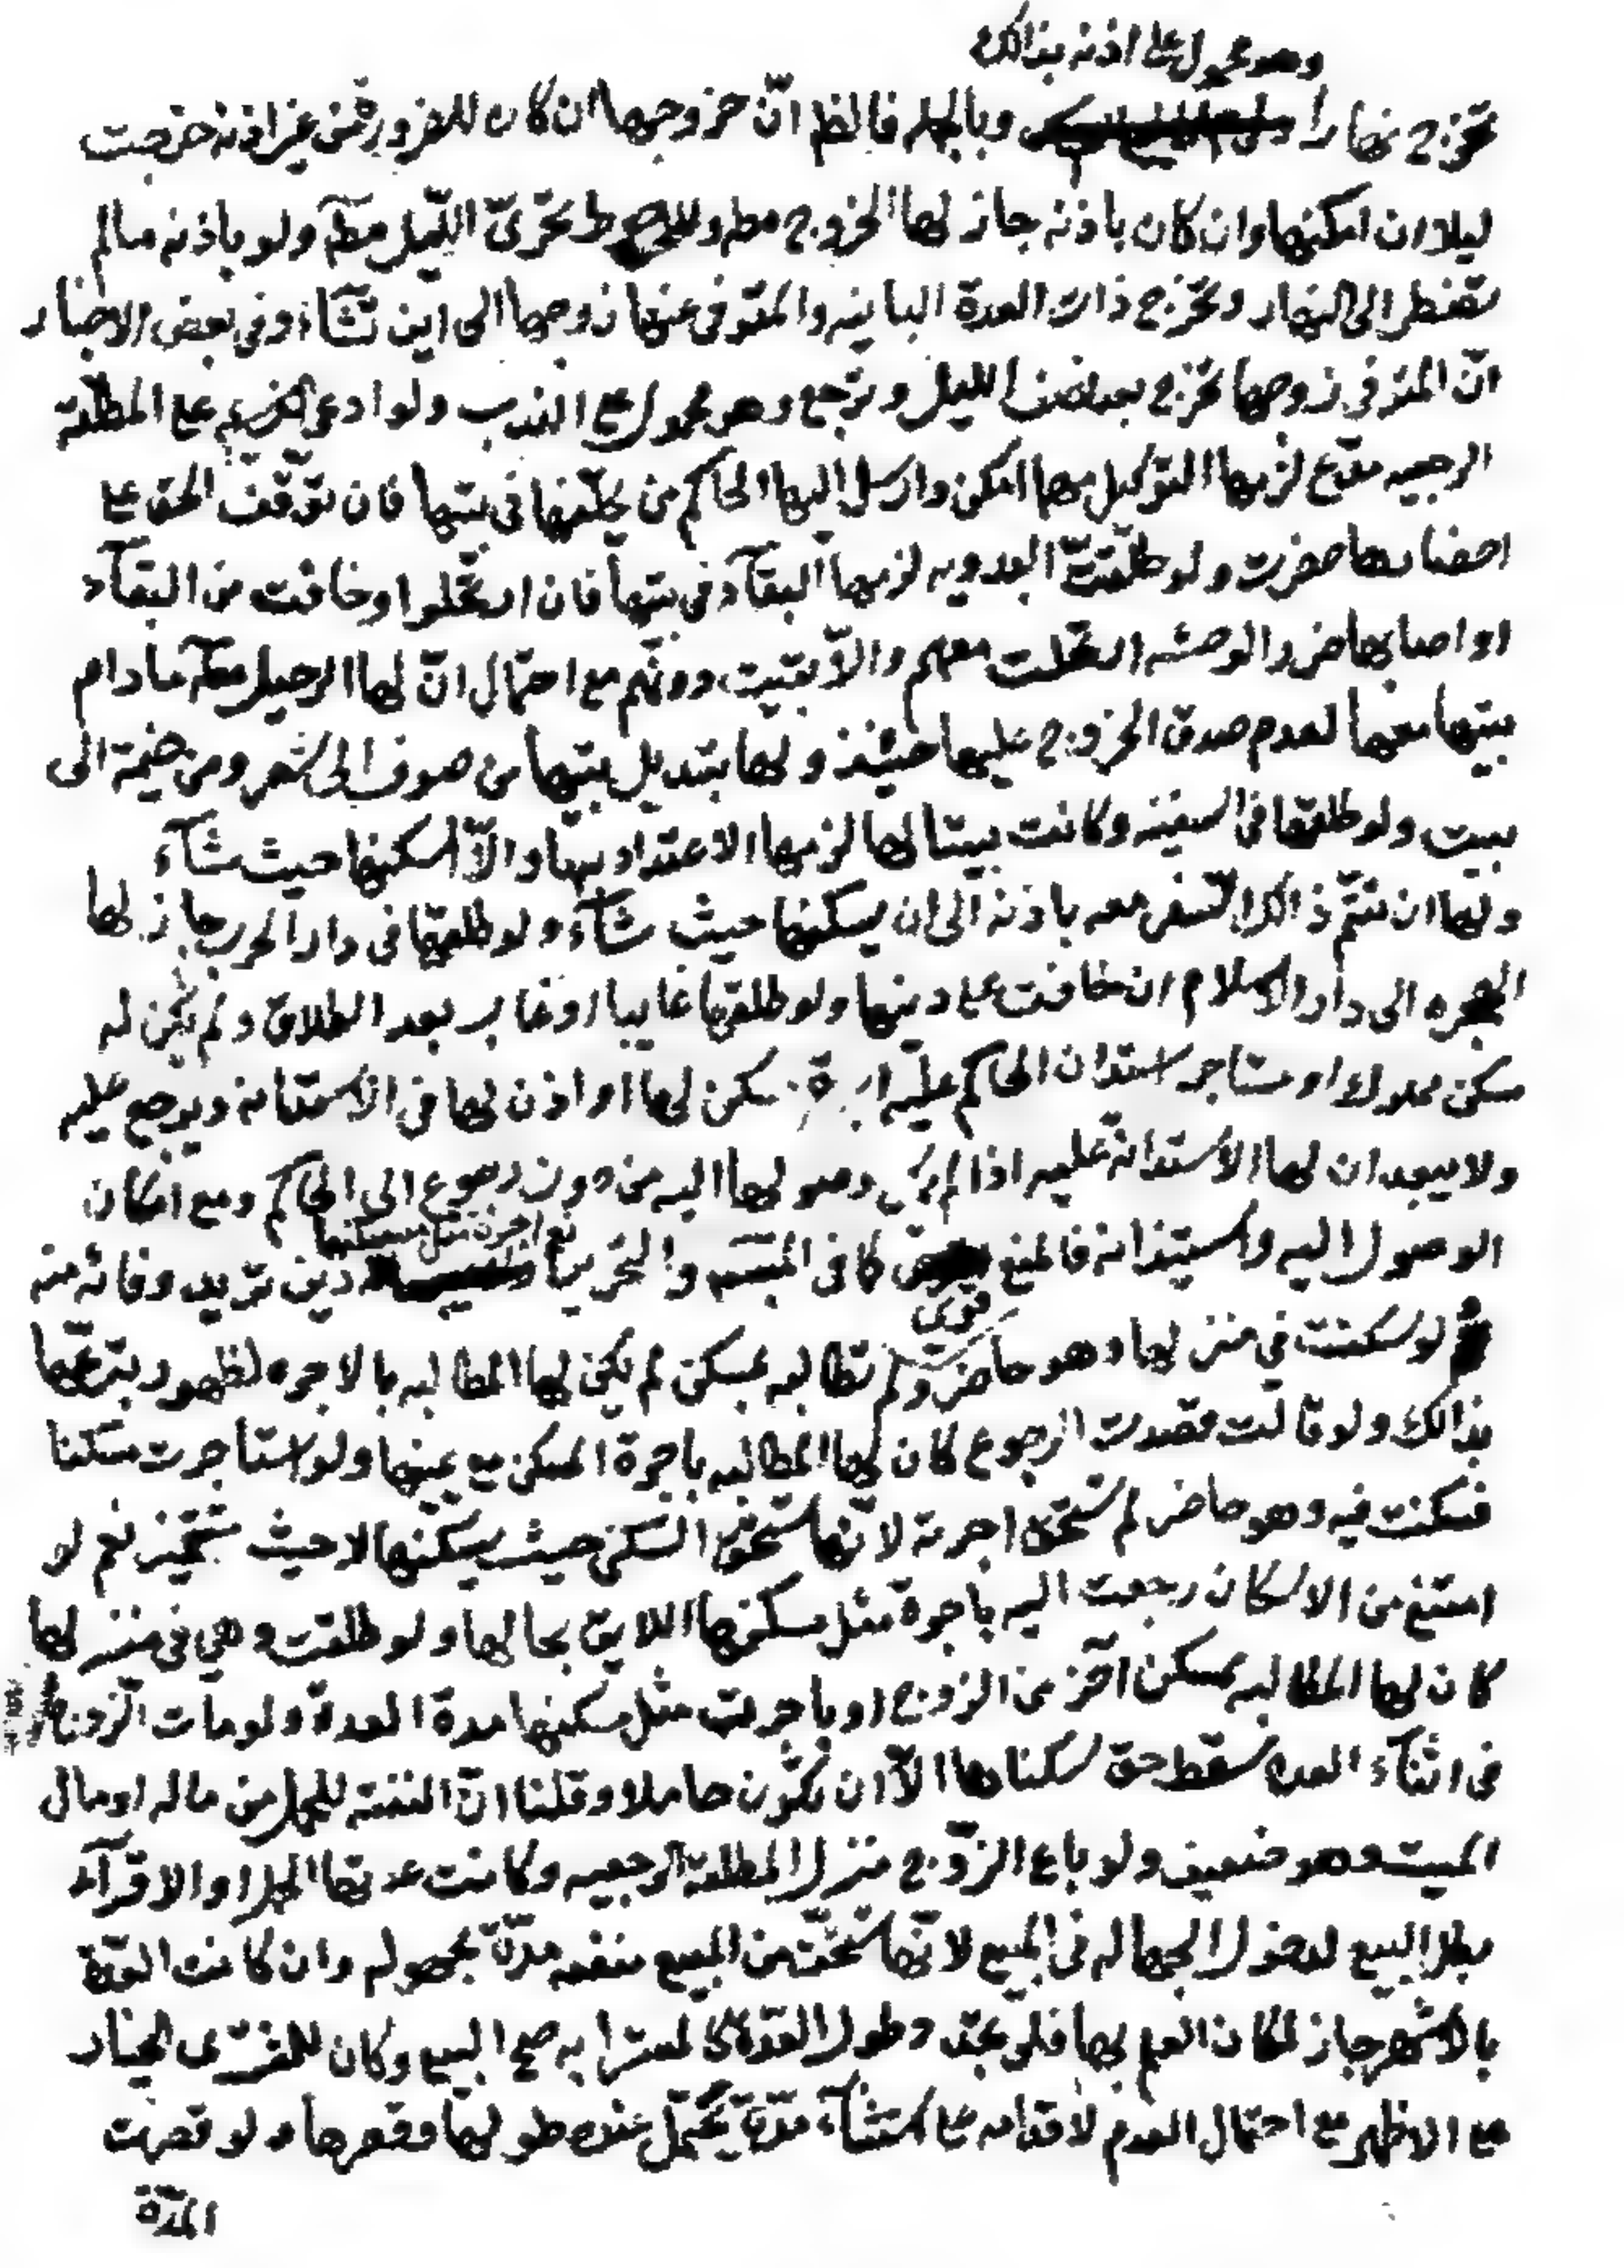 وهو محمول على اذنه بذالك
تخرج نهارا وبالجمله فالظ انّ خروجها ان كان للضرورة من غير اذنه خرجت
ليلا ان امكنها وان كان باذنه جاز لها الخروج مطه والاحوط تحرّى اللّيل مطه ولو باذنه مالم
تضطر الى النهار وتخرج ذات العدة الباينه والمتوفى عنها زوجها الى اين تشاء وفي بعض الاخبار
انّ المتوفى زوجها تخرج بعد نصف الليل وترجع وهو محمول على الندب ولو ادعى على المطلّقة
الرجعيه مدّع لزمها التوكيل مهما امكن وارسل اليها الحاكم من يحلّفها في بيتها فان توقّف الحق على
احضارها حضرت ولو طلّقت البدويه لزمها البقآء في بيتها فان ارتحلوا او خافت من البقآء
او اصابها ضرر الوحشه ارتحلت معهم والاّ بقيت دونهم مع احتمال انّ لها الرحيل معهم مادام
بيتها معها لعدم صدق الخروج عليها حينئذ ولها تبديل بيتها من صوف الى شعر ومن خيمة الى
بيت ولو طلقها في السفينه وكانت بيتا لها لزمها الاعتداد بها والاّ اسكنها حيث شآء
ولها ان تتمّ ذالك السّفر معه باذنه الى ان يسكنها حيث شآء ولو طلقها في دار الحرب جاز لها
الهجره الى دار الاسلام ان خافت على دينها ولو طلقها غايبا او غاب بعد الطلاق ولم يكن له
مسكن مملوك او مستاجر استدان الحاكم عليه سكن لها او اذن لها في الاستدانه ويرجع عليه
ولا يبعد ان لها الاستدانة عليه اذا لم وصولها اليه من دون رجوع الى الحاكم ومع امكان
الوصول اليه واستيذانه فالمنع قوى كما في والتحرير نع اجرة مثل مسكنها دين تريد وفائه منه
لو سكنت في منزلها وهو حاضر ولم تطالبه بمسكن لم يكن لها المطالبه بالاجره لظهور تبرعها
بذالك ولو قالت قصدت الرجوع كان لها المطالبه باجرة المسكن مع يمينها ولو استأجرت مسكنا
فسكنت فيه وهو حاضر لم تستحق اجرته لانّها تستحقّ السّكنى حيث يسكنها لا حيث تتخيّر نعم لو
امتنع من الاسكان رجعت اليه باجرة مثل مسكنها اللايق بحالها ولو طلقت وهي في منزلها
كان لها المطالبه بمسكن آخر من الزوج او باجرت مثل مسكنها مدة العدة ولو مات الزوج
في اثنآء العده سقط حق سكناها الاّ ان تكون حاملا وقلنا انّ النفقه للحمل من ماله او مال
الميت وهو ضعيف ولو باع الزّوج منزل المطلقة الرجعيه وكانت عدتها الحمل او الاقرآء
بطل البيع لدخول الجهاله في المبيع لانّها تستحقّ من المبيع منفعه مدّة مجهوله وان كانت العدّة
بالاشهر جاز لمكان العلم بها فلو تجدد طول العدّة كالمسترابه صح البيع وكان للمشترى الخيار
مع الاظهر مع احتمال العدم لاقدامه على استثنآء مدّة يحتمل عنده طولها وقصرها ولو قصرت
المدّة